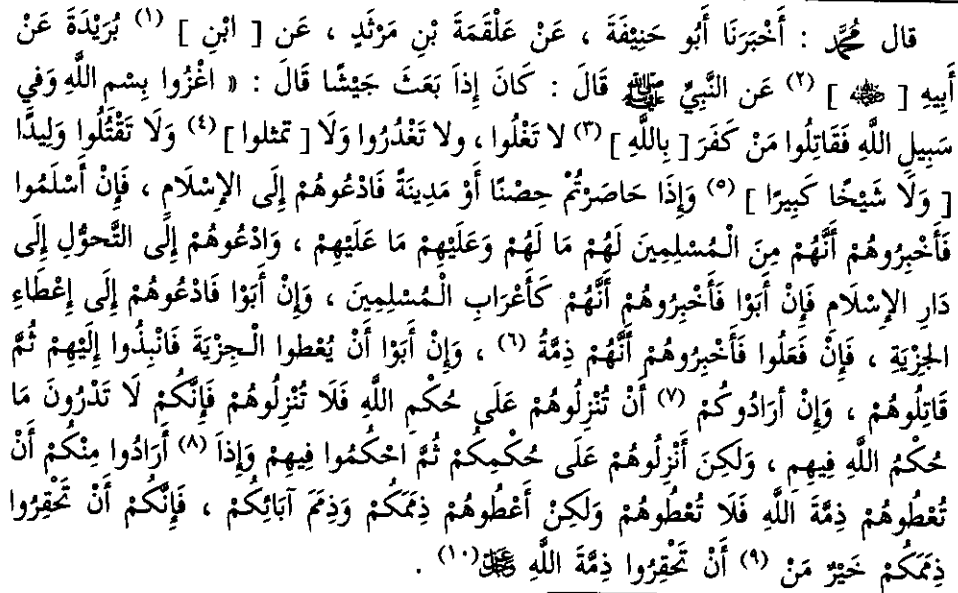 قال مُحَمَّد : أَخْبَرَنَا أَبُو حَنِيْفَةَ ، عَنْ عَلْقَمَةَ بْنِ مَرْثَدٍ ، عَن [ ابْنِ ] (١) بُرَيْدَةَ عَنْ
أَبِيهِ [ رضي الله عنه ] (٢) عَن النَّبِيِّ ﷺ قَالَ : كَانَ إِذاَ بَعَثَ جَيْشًا قَالَ : « اغْزُوا بِسْم اللَّهِ وَفي
سَبِيلِ اللَّهِ فَقَاتِلُوا مَنْ كَفَرَ [ بِاللَّهِ ] (٣) لا تَغْلُوا ، ولا تَغْدُرُوا وَلَا [ تمثلوا ] (٤) وَلَا تَقْتُلُوا وَلِيدًا
[ وَلَا شَيْخًا كَبِيرًا ] (٥) وَإِذَا حَاصَرْتُمْ حِصْنًا أَوْ مَدِينَةً فَادْعُوهُمْ إِلَى الإِسْلَامِ ، فَإِنْ أَسْلَمُوا
فَأَخْبِرُوهُمْ أَنَّهُمْ مِنَ الْمُسْلِمِينَ لَهُمْ مَا لَهُمْ وَعَلَيْهِمْ مَا عَلَيْهِمْ ، وَادْعُوهُمْ إِلَى التَّحوُّلِ إِلَى
دَارِ الإِسْلَام فَإِنْ أَبَوْا فَأَخْبِرُوهُمْ أَنَّهُمْ كَأَعْرَابِ الْمُسْلِمِينَ ، وَإِنْ أَبَوْا فَادْعُوهُمْ إِلَى إِعْطَاءِ
الجِزْيَةِ ، فَإِنْ فَعَلُوا فَأَخْبِرُوهُمْ أَنَّهُمْ ذِمَّةُ (٦) ، وَإِنْ أَبَوْا أَنْ يُعْطوا الْجِزْيَةَ فَانْبِذُوا إِلَيْهِمْ ثُمَّ
قَاتِلُوهُمْ ، وَإِنْ أرَادُوكُمْ (٧) أَنْ تُنْزِلُوهُمْ عَلَى حُكْمِ اللَّهِ فَلَا تُنْزِلُوهُمْ فَإِنَّكُمْ لَا تَدْرُونَ مَا
حُكْمُ اللَّهِ فِيهِم ، وَلَكِنَ أَنْزِلُوهُمْ عَلَى حُكْمِكُمْ ثُمَّ احْكُمُوا فِيهِمْ وَإِذاَ (٨) أَرَادُوا مِنْكُمْ أَنْ
تُعْطُوهُمْ ذِمَّةَ اللَّهِ فَلَا تُعْطُوهُمْ وَلَكِنْ أَعْطُوهُمْ ذِمَمَكُمْ وَذِمَمَ آبَائِكُمْ ، فَإِنَّكُمْ أَنْ تَحْقِرُوا
ذِمَمَكُمْ خَيْرٌ مَنْ (٩) أَنْ تَحْقِرُوا ذِمَّةَ اللَّهِ عز وجل (١٠) .